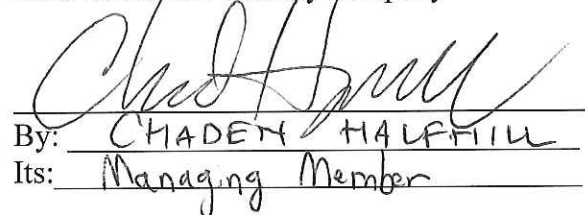 By: CHADEN HALFHILL
Its: Managing Member